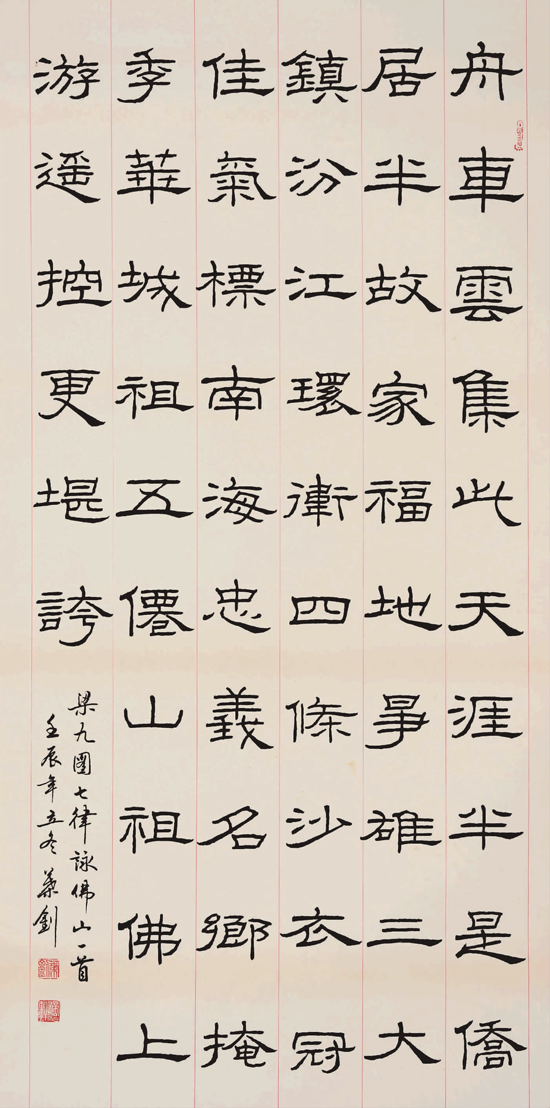 舟車雲集此天涯半是僑
居半故家福地爭雄三大
鎮汾江環衛四條沙衣冠
佳氣標南海忠義名鄉掩
季華城祖五僊山祖佛上
游遙控更堪誇
梁九圖七律詠佛山一首
壬辰年立冬